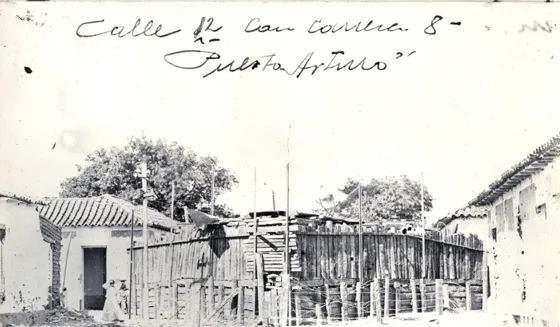 Calle 12 con carrera 8-
"Puerto Arturo"